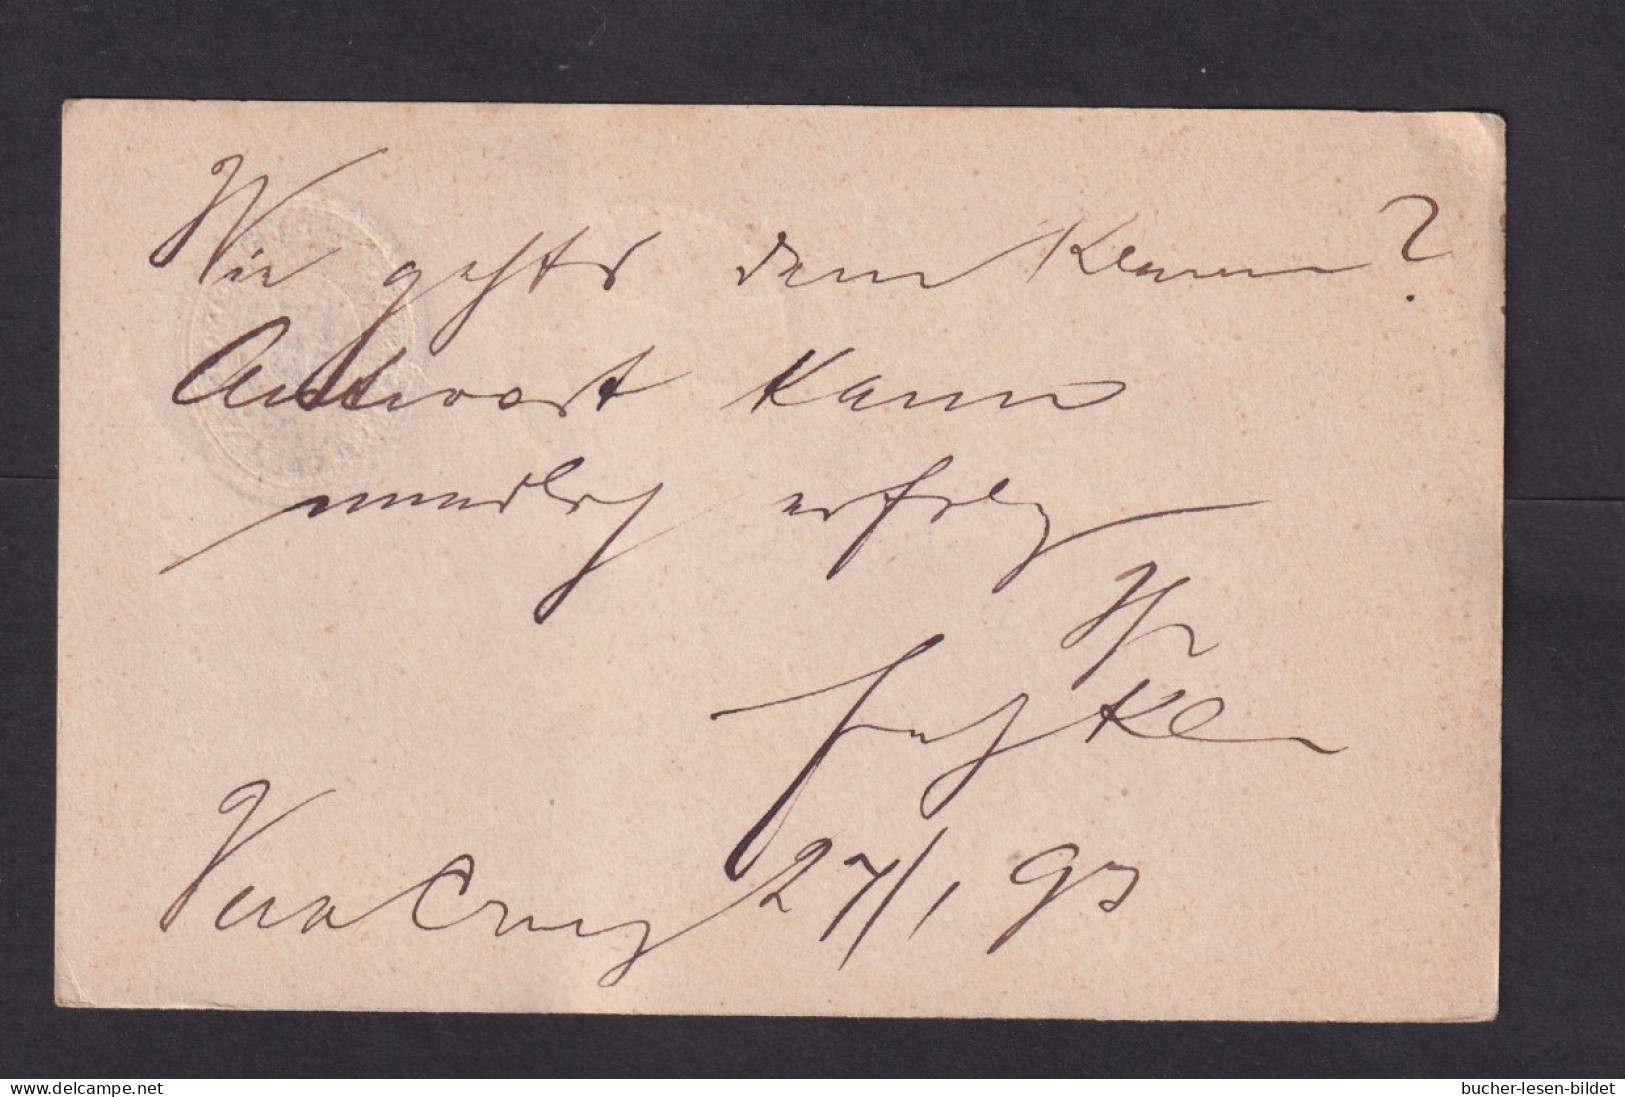 Wie gehts dem Klemm?
Antwort kann
mundlich erfolg
Ihr
Vera Cruz 27/1 93
www.delcampe.net
bucher-lesen-bildet